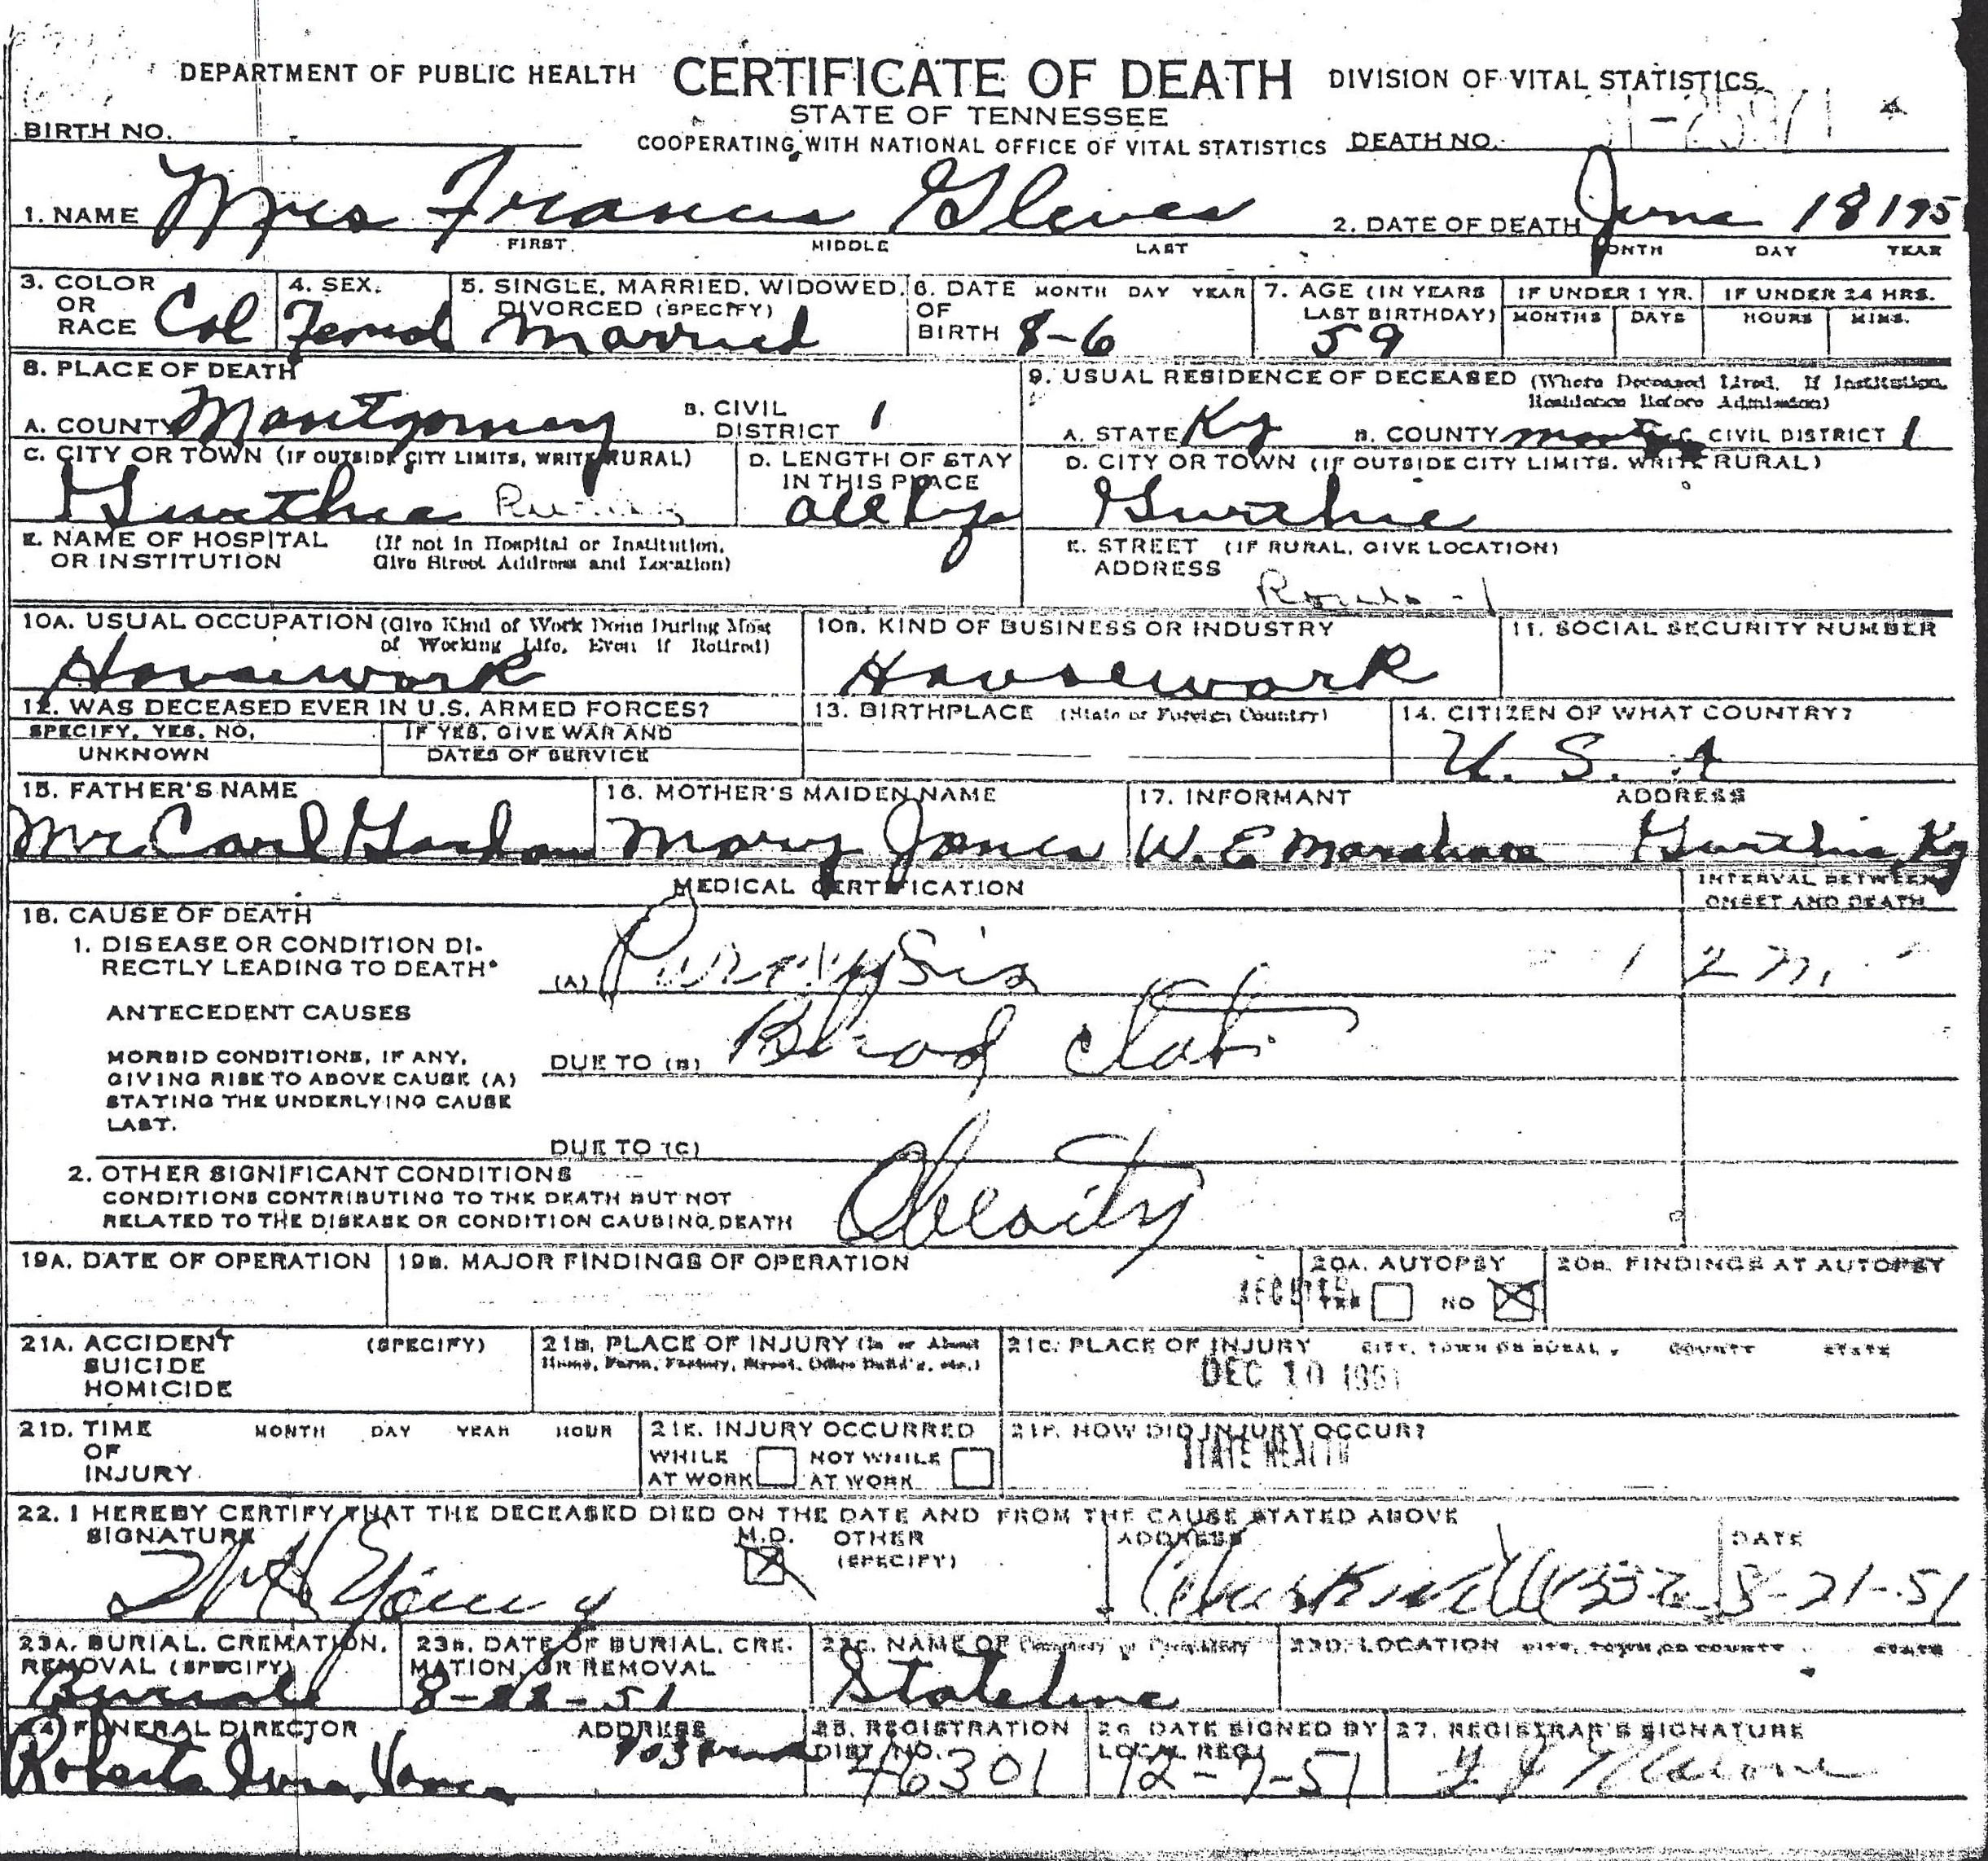 DEPARTMENT OF PUBLIC HEALTH CERTIFICATE OF DEATH DIVISION OF VITAL STATISTICS
STATE OF TENNESSEE
BIRTH NO. COOPERATING WITH NATIONAL OFFICE OF VITAL STATISTICS DEATH NO.
1. NAME Mrs Francis Gleves 2. DATE OF DEATH June 18 195
FIRST MIDDLE LAST MONTH DAY YEAR
3. COLOR OR RACE Col 4. SEX. Femal 5. SINGLE, MARRIED, WIDOWED, DIVORCED (SPECIFY) Married 6. DATE OF BIRTH MONTH DAY YEAR 8-6 7. AGE (IN YEARS LAST BIRTHDAY) 59 IF UNDER 1 YR. MONTHS DAYS IF UNDER 24 HRS. HOURS MINS.
8. PLACE OF DEATH 9. USUAL RESIDENCE OF DECEASED (Where Deceased Lived. If Institution, Residence Before Admission)
A. COUNTY Montgomery B. CIVIL DISTRICT 1 A. STATE Ky B. COUNTY C. CIVIL DISTRICT 1
C. CITY OR TOWN (IF OUTSIDE CITY LIMITS, WRITE RURAL) D. LENGTH OF STAY IN THIS PLACE D. CITY OR TOWN (IF OUTSIDE CITY LIMITS, WRITE RURAL)
Gurthie all Gurthie
E. NAME OF HOSPITAL OR INSTITUTION (If not in Hospital or Institution, Give Street Address and Location) E. STREET ADDRESS (IF RURAL, GIVE LOCATION)
Route -1
10A. USUAL OCCUPATION (Give Kind of Work Done During Most of Working Life, Even if Retired) 10B. KIND OF BUSINESS OR INDUSTRY 11. SOCIAL SECURITY NUMBER
Housework Housework
12. WAS DECEASED EVER IN U.S. ARMED FORCES? 13. BIRTHPLACE (State or Foreign Country) 14. CITIZEN OF WHAT COUNTRY?
SPECIFY, YES, NO, UNKNOWN IF YES, GIVE WAR AND DATES OF SERVICE U. S. A
15. FATHER'S NAME 16. MOTHER'S MAIDEN NAME 17. INFORMANT ADDRESS
Mr Carl Mary Jones W. E Gurthie, Ky
MEDICAL CERTIFICATION INTERVAL BETWEEN ONSET AND DEATH
18. CAUSE OF DEATH
1. DISEASE OR CONDITION DIRECTLY LEADING TO DEATH* (A) Paralysis 2
ANTECEDENT CAUSES
MORBID CONDITIONS, IF ANY, GIVING RISE TO ABOVE CAUSE (A) STATING THE UNDERLYING CAUSE LAST. DUE TO (B) Blood Clot
DUE TO (C)
2. OTHER SIGNIFICANT CONDITIONS
CONDITIONS CONTRIBUTING TO THE DEATH BUT NOT
RELATED TO THE DISEASE OR CONDITION CAUSING DEATH Obesity
19A. DATE OF OPERATION 19B. MAJOR FINDINGS OF OPERATION 20A. AUTOPSY 20B. FINDINGS AT AUTOPSY
YES NO
21A. ACCIDENT SUICIDE HOMICIDE (SPECIFY) 21B. PLACE OF INJURY (In or About Home, Farm, Factory, Street, Office Build'g, etc.) 21C. PLACE OF INJURY CITY, TOWN OR RURAL, COUNTY STATE
DEC 10 1951
21D. TIME OF INJURY MONTH DAY YEAR HOUR 21E. INJURY OCCURRED WHILE AT WORK NOT WHILE AT WORK 21F. HOW DID INJURY OCCUR?
STATE HEALTH
22. I HEREBY CERTIFY THAT THE DECEASED DIED ON THE DATE AND FROM THE CAUSE STATED ABOVE
SIGNATURE M.D. OTHER (SPECIFY) ADDRESS DATE
Young 8-21-51
23A. BURIAL, CREMATION, REMOVAL (SPECIFY) 23B. DATE OF BURIAL, CREMATION, OR REMOVAL 23C. NAME OF Cemetery or Crematory 23D. LOCATION CITY, TOWN, OR COUNTY STATE
Burial Stateline
24. FUNERAL DIRECTOR ADDRESS 25. REGISTRATION DIST. NO. 26. DATE SIGNED BY LOCAL REG. 27. REGISTRAR'S SIGNATURE
46301 12-7-51